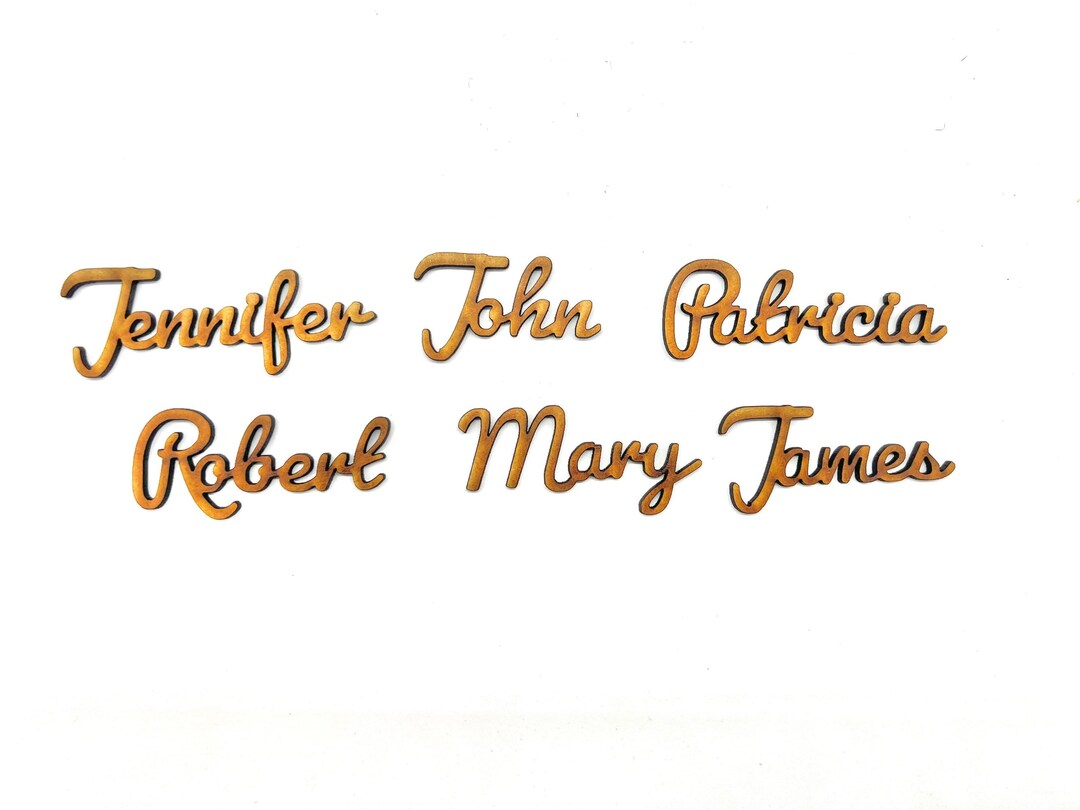 Jennifer John Patricia
Robert Mary James